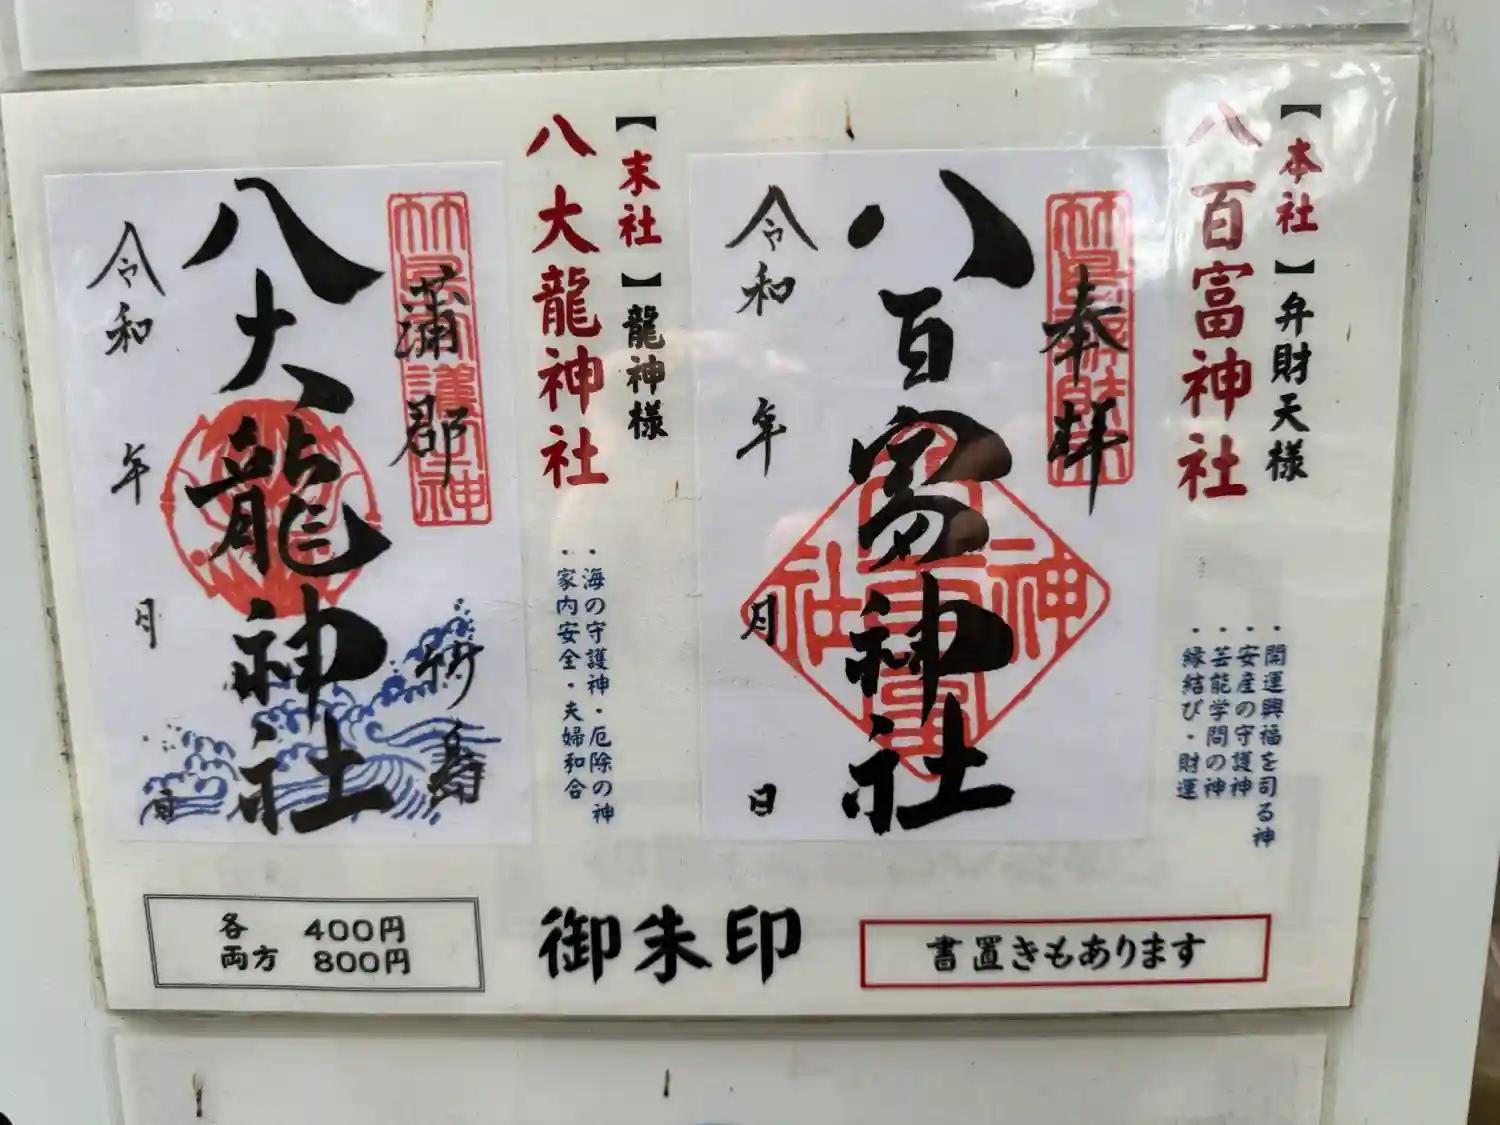 【本社】弁財天様
八百富神社
・開運興福を司る神
・安産の守護神
・芸能学問の神
・縁結び・財運
奉拝
八百富神社
神
社
令和 年 月 日
【末社】龍神様
八大龍神社
・海の守護神・厄除の神
・家内安全・夫婦和合
蒲郡 竹島
八大龍神社
令和 年 月 日
御朱印
書置きもあります
各 400円
両方 800円